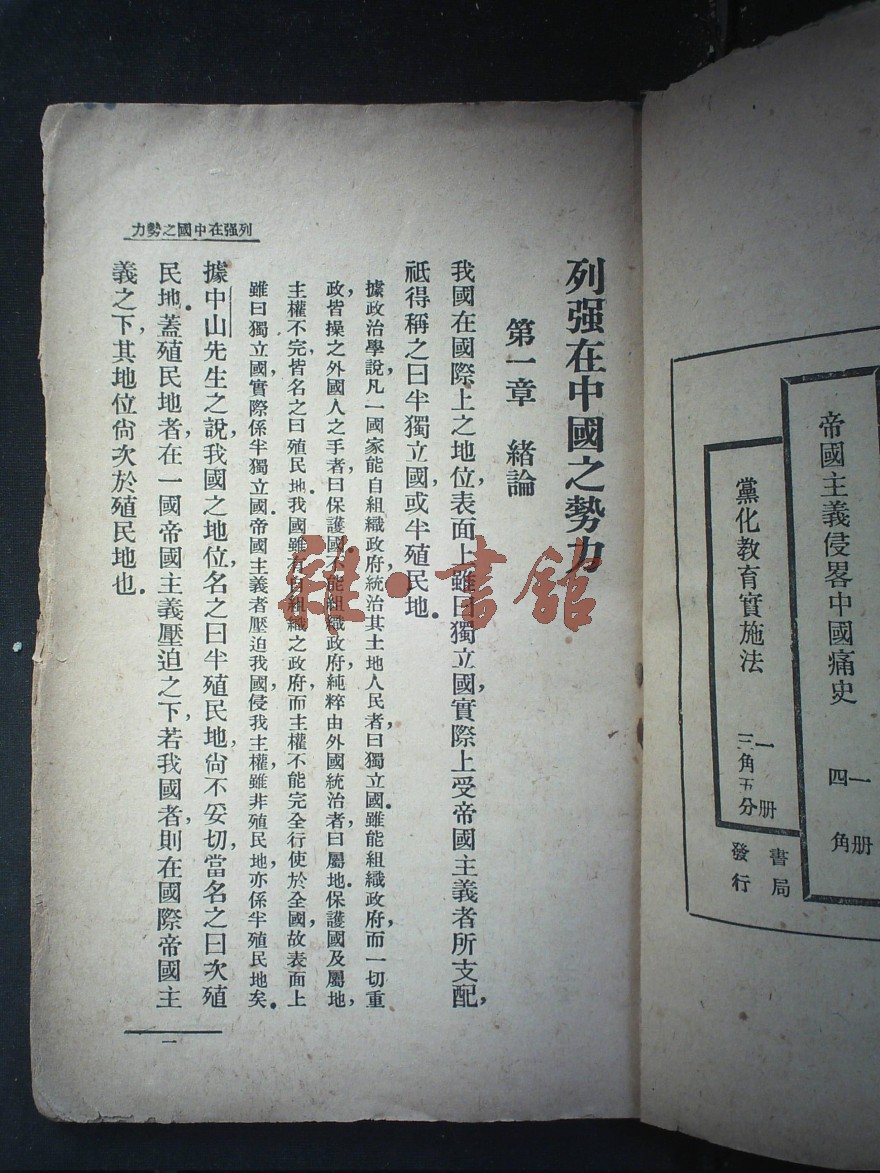 帝國主義侵畧中國痛史 一册 四角
黨化教育實施法 一册 三角五分
書局
發行
列强在中國之勢力
第一章 緒論
我國在國際上之地位，表面上雖曰獨立國，實際上受帝國主義者所支配，
祇得稱之曰半獨立國，或半殖民地．
據政治學說，凡一國家能自組織政府，統治其土地人民者，曰獨立國．雖能組織政府，而一切重
政，皆操之外國人之手者，曰保護國．不能組織政府，純粹由外國統治者，曰屬地．保護國及屬地，
主權不完，皆名之曰殖民地．我國雖有自組織之政府，而主權不能完全行使於全國，故表面上
雖曰獨立國，實際係半獨立國．帝國主義者壓迫我國，侵我主權，雖非殖民地，亦係半殖民地矣．
據中山先生之說，我國之地位，名之曰半殖民地，尙不妥切，當名之曰次殖
民地．蓋殖民地者，在一國帝國主義壓迫之下，若我國者，則在國際帝國主
義之下，其地位尙次於殖民地也．
列强在中國之勢力
一
雜·書舘